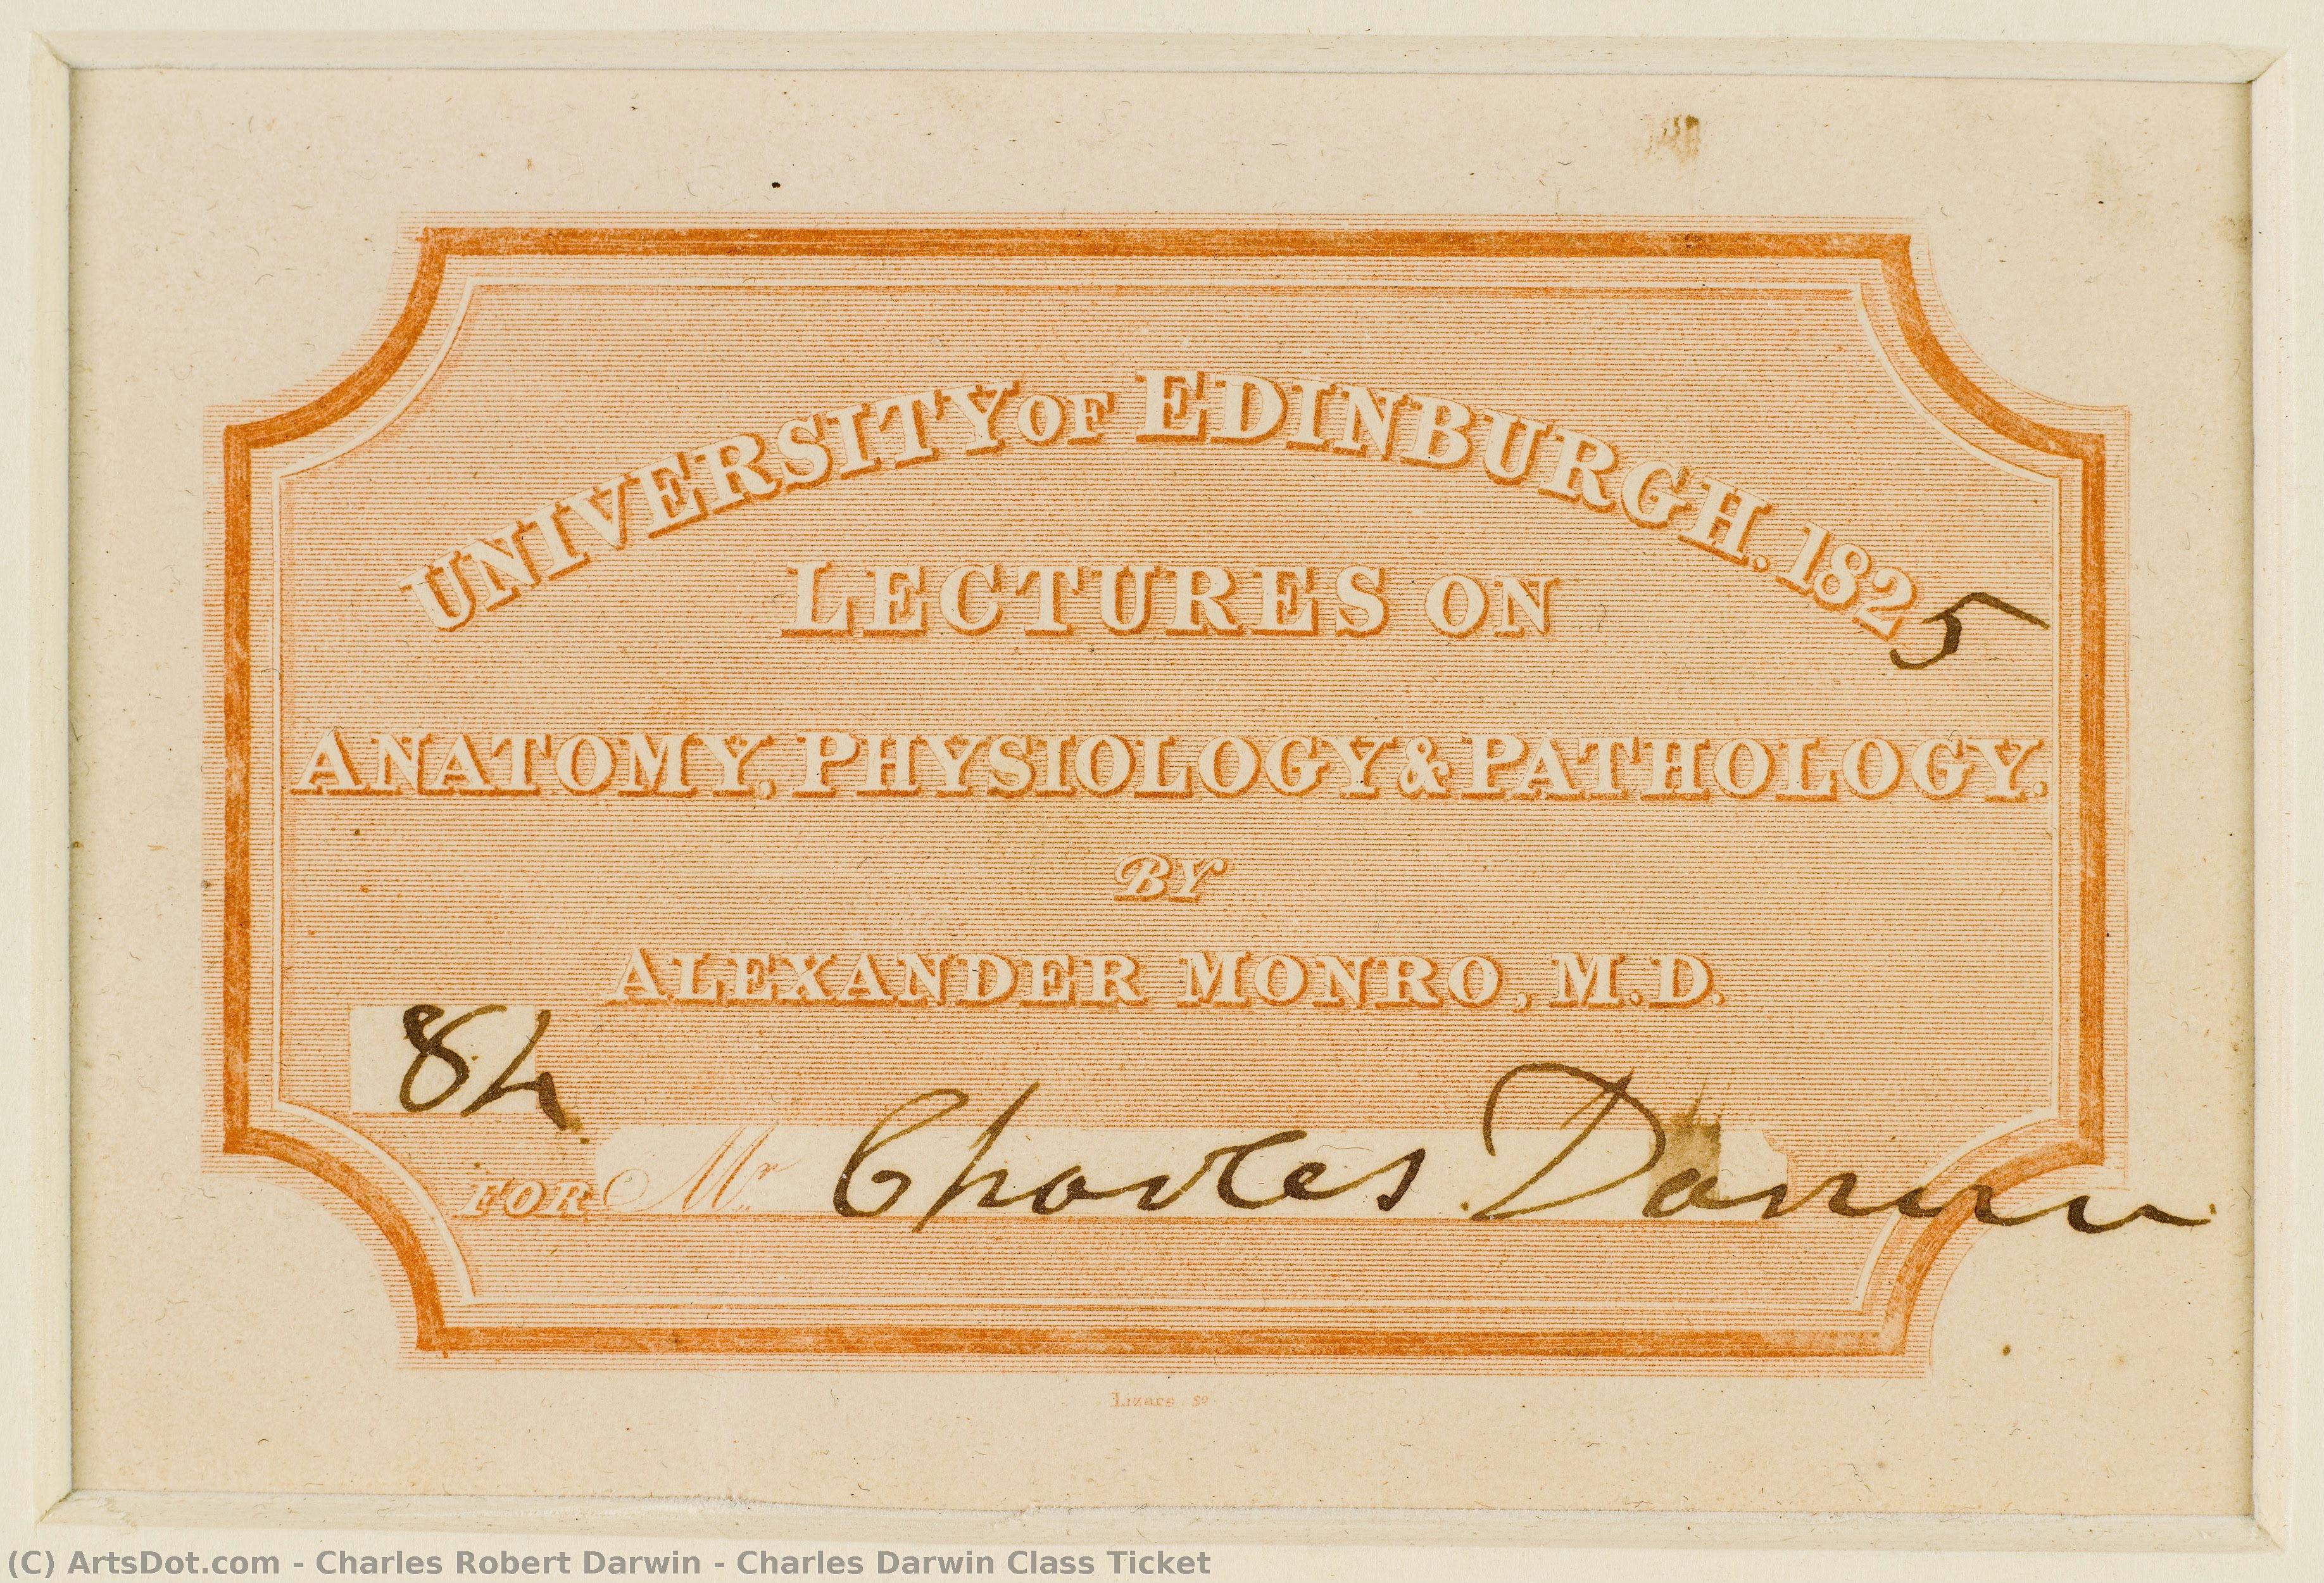 UNIVERSITY OF EDINBURGH. 1825
LECTURES ON
ANATOMY, PHYSIOLOGY & PATHOLOGY.
BY
ALEXANDER MONRO, M.D.
84
FOR Mr Charles Darwin
Lizars sc
(C) ArtsDot.com - Charles Robert Darwin - Charles Darwin Class Ticket